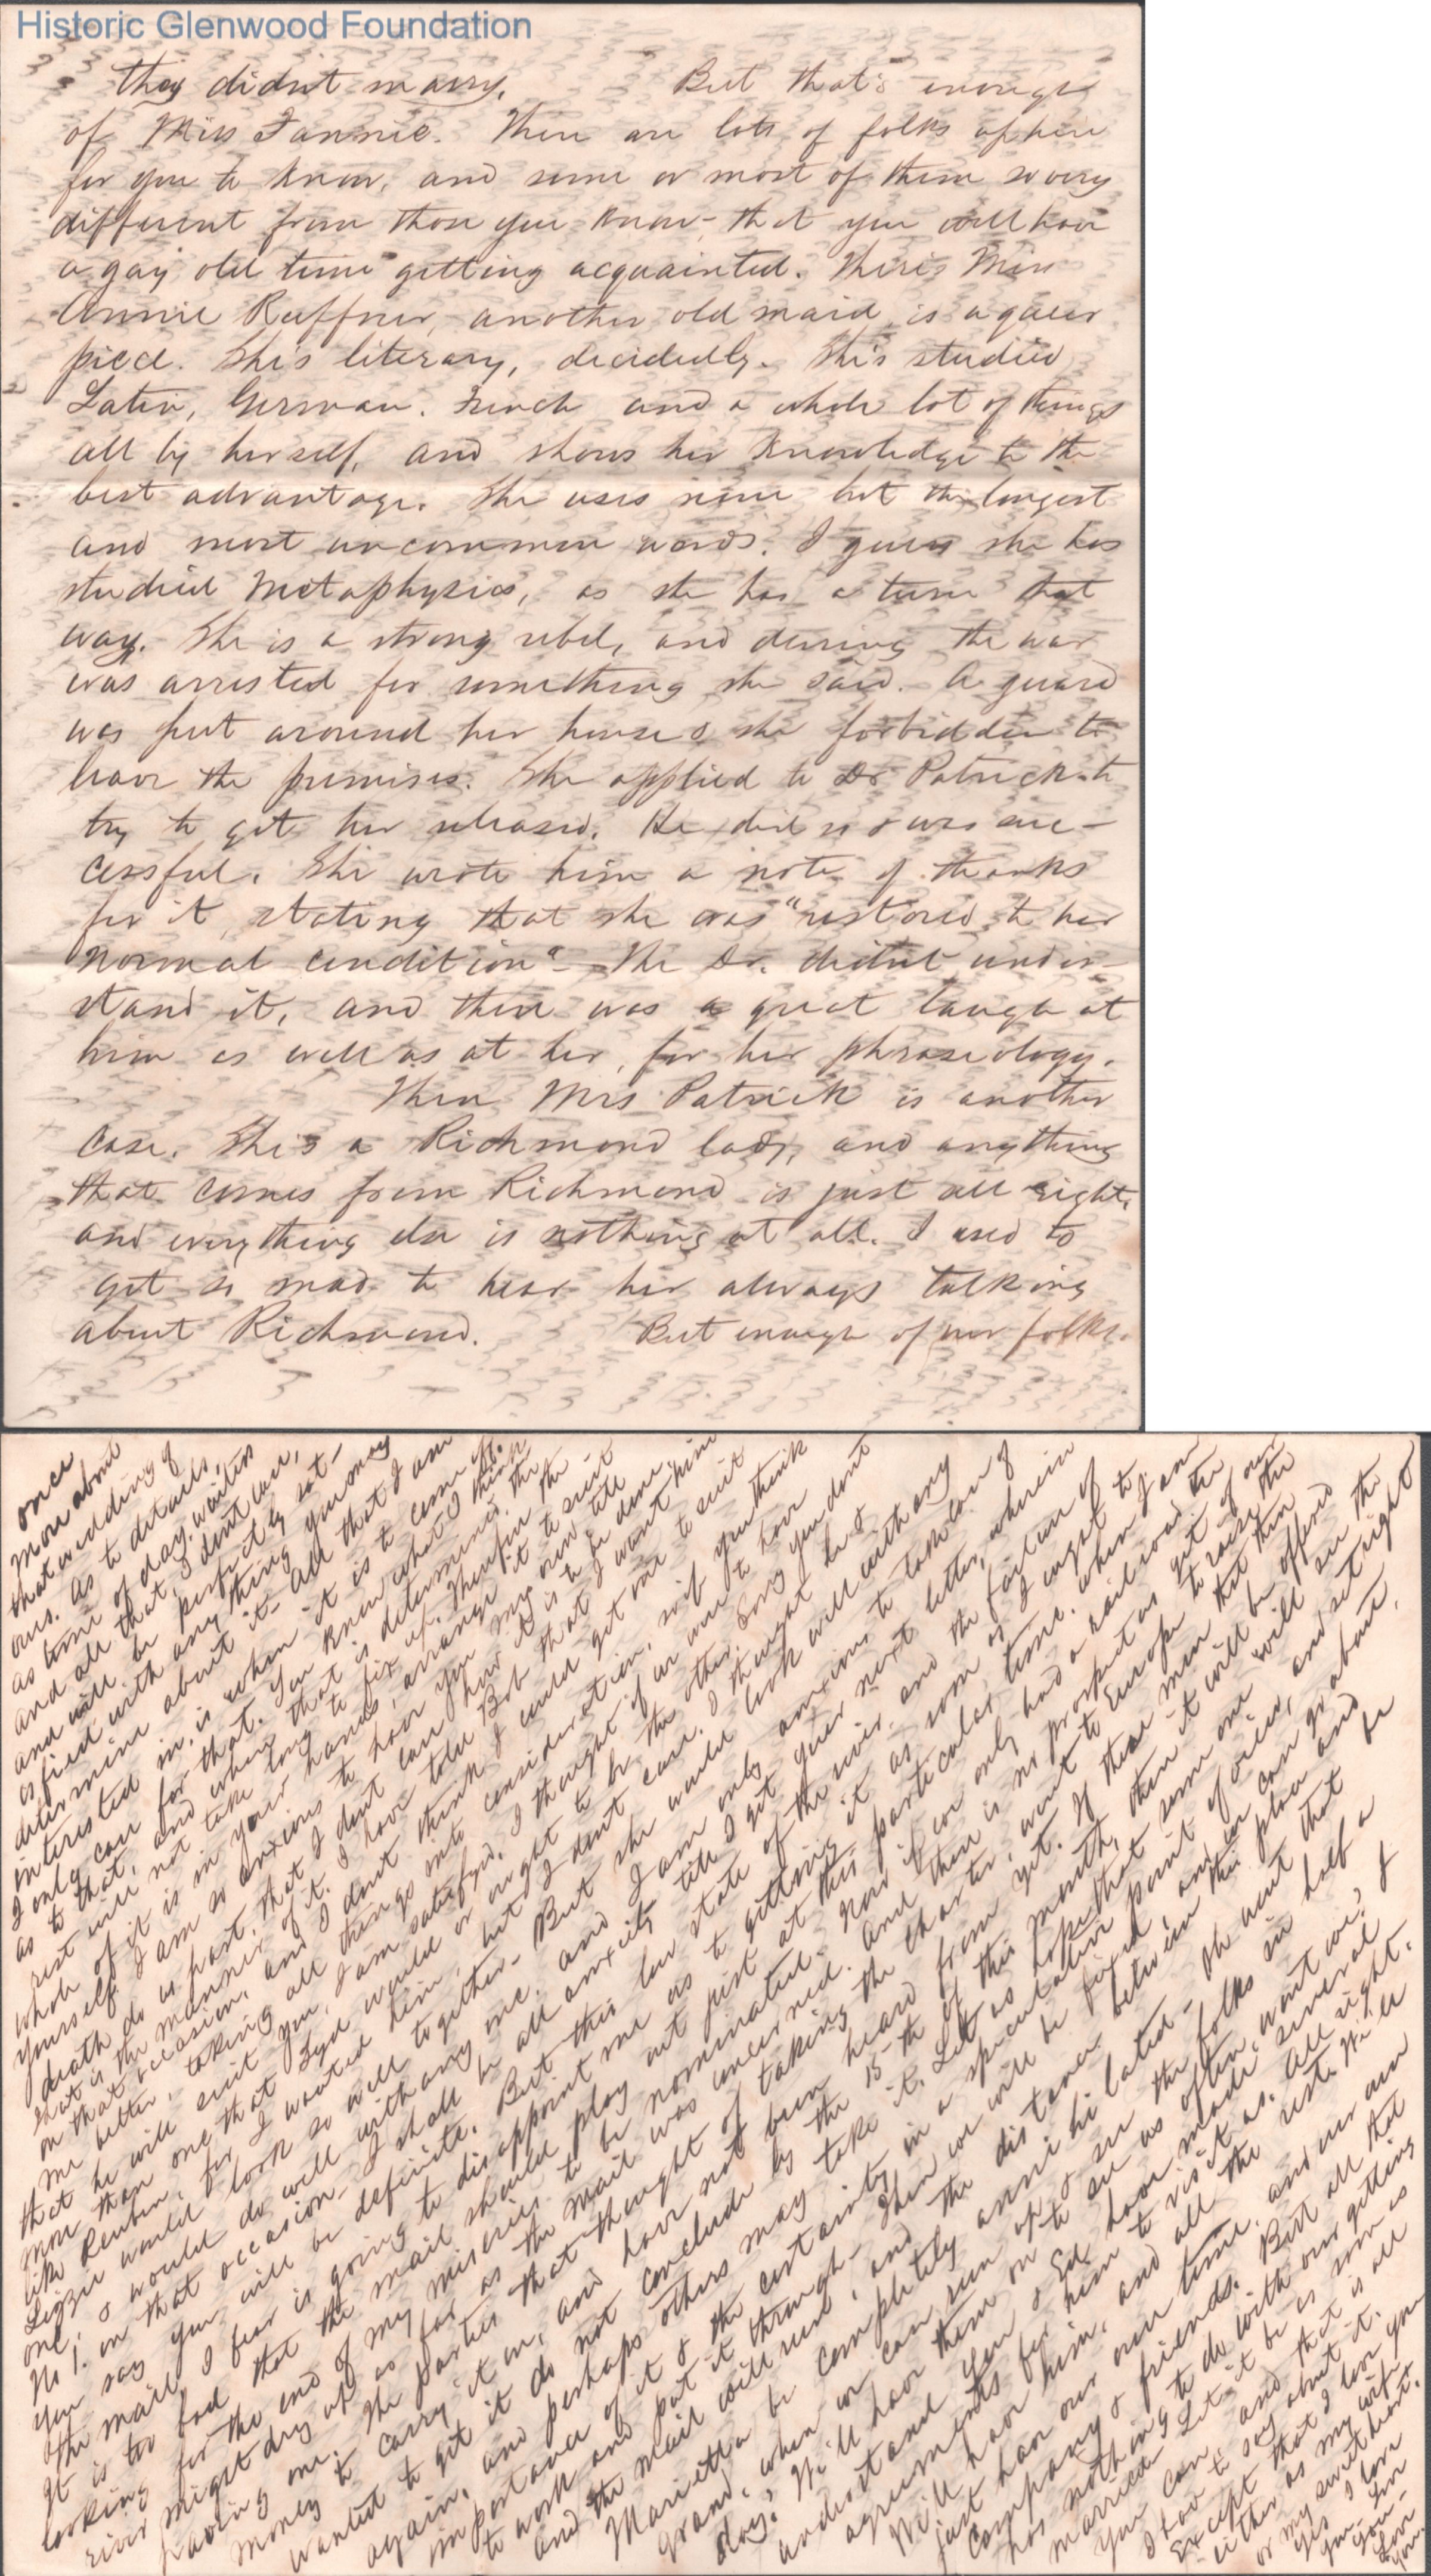 Historic Glenwood Foundation
they didn't marry. But that's enough
of Miss Fannie. There are lots of folks up here
for you to know, and some or most of them so very
different from those you know - that you will have
a gay old time getting acquainted. There's Miss
Annie Ruffner, another old maid, is a queer
piece. She's literary, decidedly. She's studied
Latin, German, French and a whole lot of things
all by herself, and shows her knowledge to the
best advantage. She uses none but the longest
and most uncommon words. I guess she has
studied Metaphysics, as she has a turn that
way. She is a strong rebel, and during the war
was arrested for something she said. A guard
was put around her house & she forbidden to
leave the premises. She applied to Dr Patrick to
try to get her released. He did so & was suc-
cessful. She wrote him a note of thanks
for it, stating that she was "restored to her
normal condition" - The Dr. didn't under-
stand it, and there was a great laugh at
him as well as at her, for her phraseology.
Then Mrs Patrick is another
case. She's a Richmond lady, and anything
that comes from Richmond is just all right,
and everything else is nothing at all. I used to
get so mad to hear her always talking
about Richmond. But enough of our folks.
once
more about
that wedding of
ours. As to details,
as time of day, waiters
and all that, I don't care,
and will be perfectly sat-
isfied with anything you may
determine about it - All that I am
interested in, is when it is to come off.
I only care for that. You know what I think
as to that, and when that is determined, the
rest will not take long to fix up. Therefore the
whole of it is in your hands, arrange it to suit
yourself. I am so anxious to have you my own till
death do us part, that I don't care how it is to be done,
that is the manner of it. I have told Bob that I want him
on that occasion, and I don't think I could get one to suit
me better, taking all things into consideration, so if you think
that he will suit you, I am satisfied. I thought if we were to have
more than one that Syd would or ought to be the other. Song you don't
like Reuben, for I wanted him, but I don't care. I thought he &
Lizzie would look so well together - But she would look well with any
one, & would do well with any one, and I am only anxious to take care of
No 1. on that occasion - I shall be all anxiety till I get your next letter, wherein
you say you will be definite. But this low state of the river and the failure of
the mail I fear is going to disappoint me as to getting it as soon as I ought to
It is too bad that the mail should play out just at this particular time, when I am
looking for the end of my miseries to be nominated. Now if we only had a railroad the
river might dry up as far as the mail was concerned. And there is no prospect as yet of our
having one. The parties that thought of taking the charter, went to Europe to raise the
money to carry it on, and have not been heard from yet. If these men that then
wanted to get it do not conclude by the 15th of this month, then it will be offered
again, and perhaps others may take it. Let us hope that some one will see the
importance of it & the certainty in a speculative point of view, and set right
to work and put it through - Then we will be fixed, and we can go about,
and the mail will run, and the distance between this place and
Marietta be completely annihilated - Oh wont that be
grand, when we can run up & see the folks in half a
day; We'll have them on to see us often, wont we; I
understand you & Ed have made several
agreements for him to visit us. All right.
We'll have him, and all the rest. We'll
just have our own time, and our own
company & friends. But all that
has nothing to do with our getting
married. Let it be as soon as
you can, and that is all
I have to say about it.
Except that I love you
either as my wife
or my sweetheart.
Yes I love
you - Love
you -
Love
you.